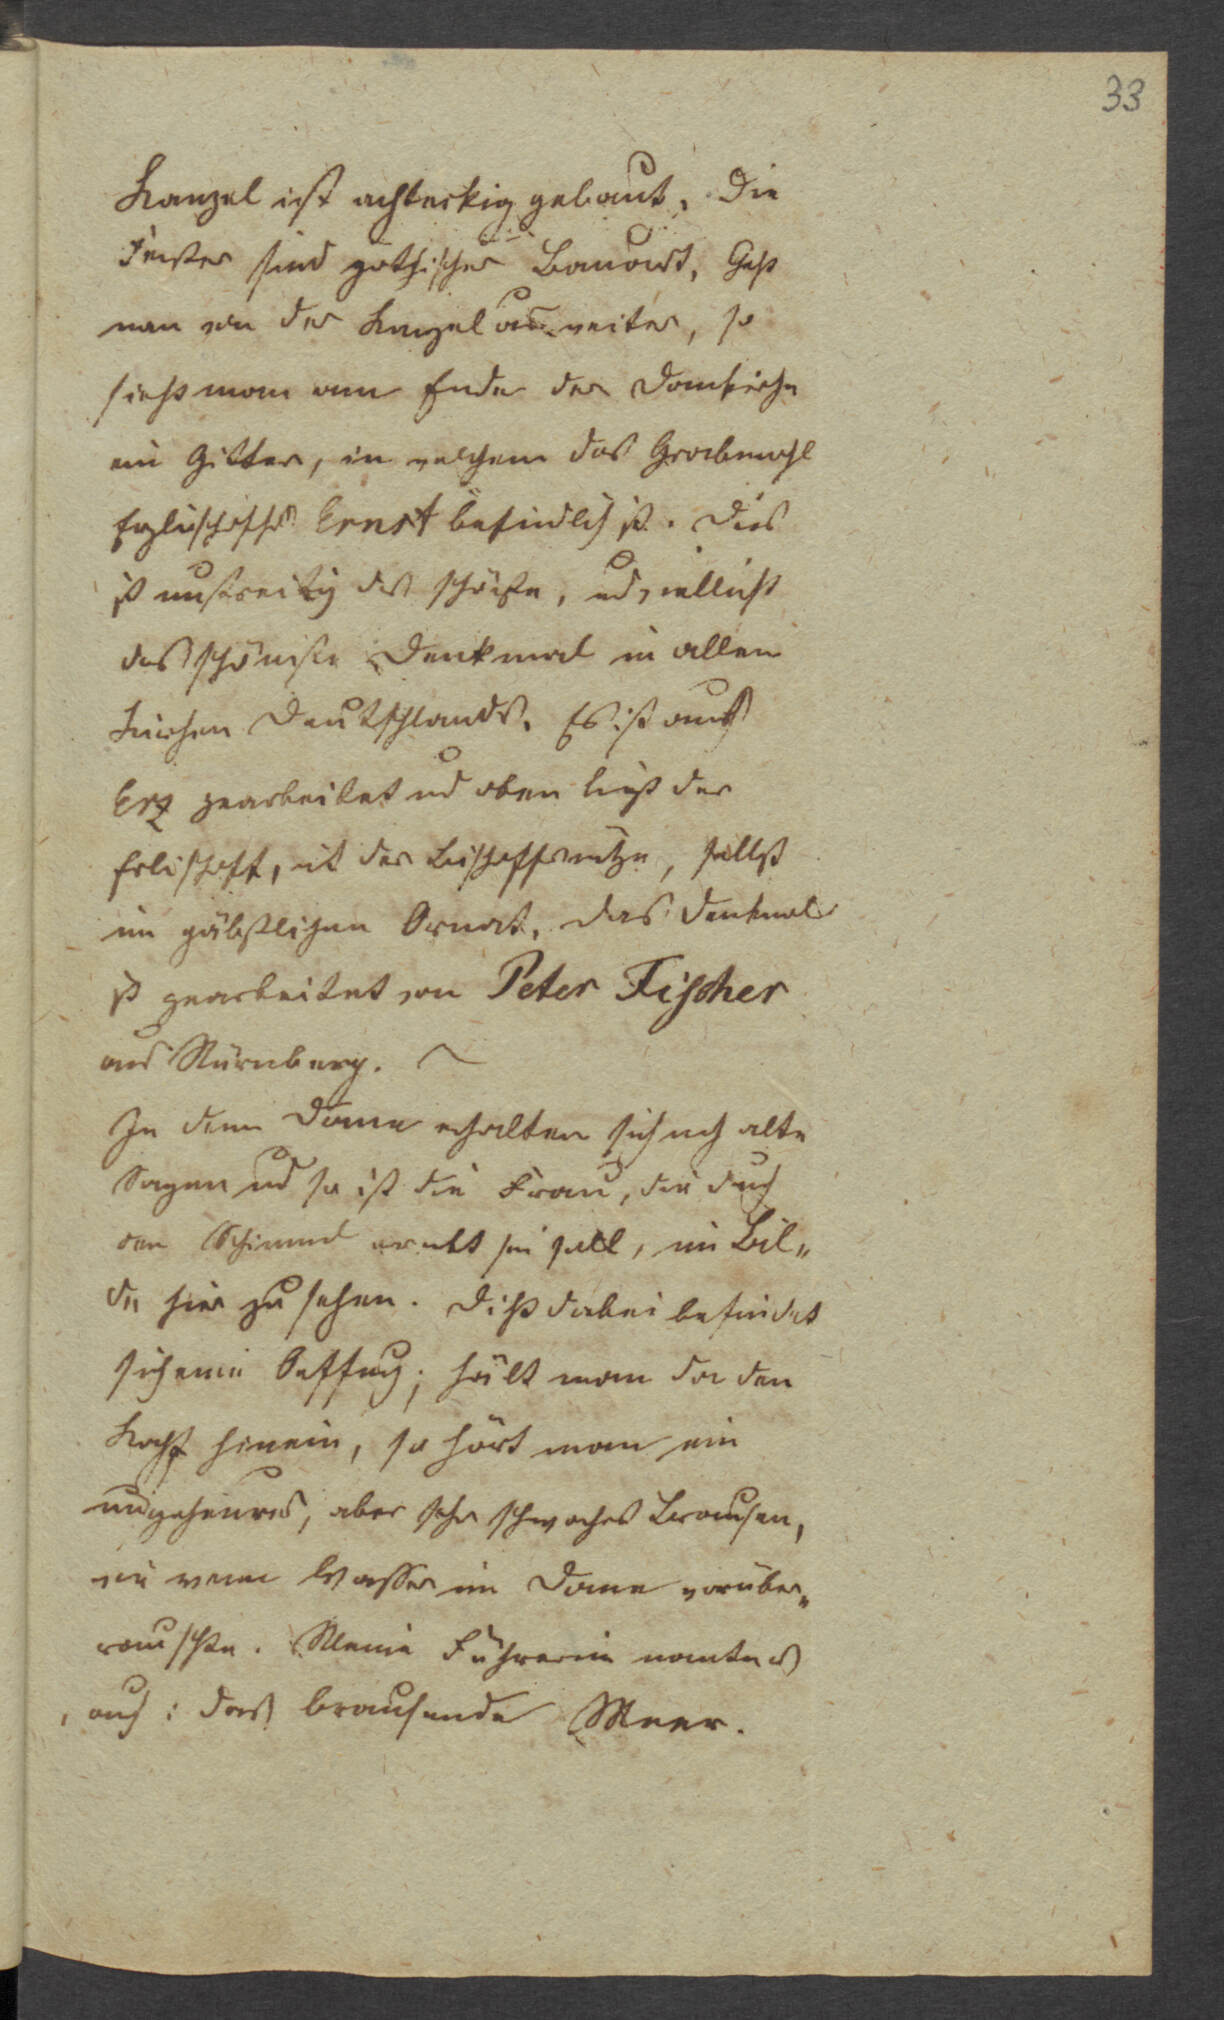 33
Kanzel ist achteckig gebaut. Die
Fenster sind gothischer Bauart. Geht
man von der Kanzel aus weiter, so
sieht man am Ende der Domkirche
ein Gitter, in welchem das Grabmahl
Erzbischoffs Ernst befindlich ist. Dies
ist unstreitig das schönste, und vielleicht
das schönste Denkmal in allen
Kirchen Deutschlands. Es ist aus
Erz gearbeitet und oben liegt der
Erzbischoff, mit der Bischoffsmütze, selbst
im päbstlichen Ornat. Das Denkmal
ist gearbeitet von Peter Fischer
aus Nürnberg.
In dem Dome erhalten sich noch alte
Sagen und so ist die Frau, die durch
den Schimmel erweckt sein soll, im Bil„
de hier zu sehen. Dicht dabei befindet
sich eine Oeffnung; hält man da den
Kopf hinein, so hört man ein
ungeheures, aber sehr schwaches Brausen,
wie wenn Wasser im Dome vorüber„
rauschte. Meine Führerin nannte es
auch: das brausende Meer.